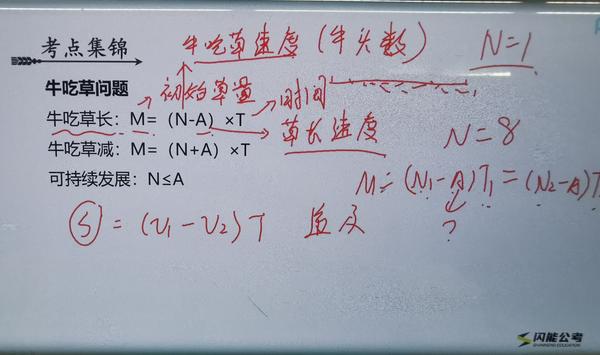 考点集锦
牛吃草速度(牛头数)
N=1
牛吃草问题
初始草量
时间
牛吃草长：M=（N-A）×T
草长速度
N=8
牛吃草减：M=（N+A）×T
可持续发展：N≤A
M=(N₁-A)T₁=(N₂-A)T
?
S=(V₁-V₂)T 追及
闪能公考
SHANNENG EDUCATION